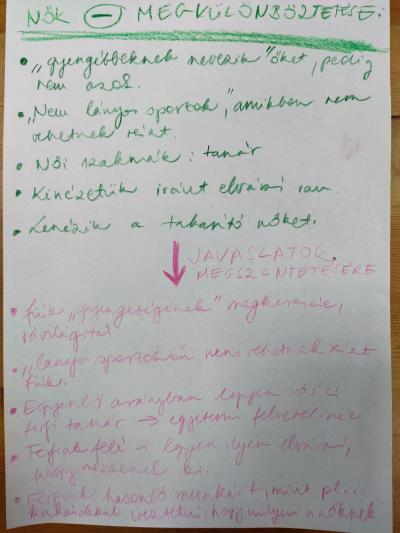 NŐK (–) MEGKÜLÖNBÖZTETÉSE:
• „gyengébbeknek nevezik” őket, pedig
nem azok.
• „Nem lányos sportok”, amikben nem
vehetnek részt.
• Női szakmák: tanár
• Kinézetük iránt elvárás van.
• Lenézik a takarító nőket.
JAVASLATOK
MEGSZÜNTETÉSÉRE
• fiúk „gyengeségének” megkeresése,
rávilágítás
• „lányos sportokon” nem vehetnek részt
fiúk.
• Egyenlő arányban legyen női és
férfi tanár → egyetemi felvételinél
• Férfiak felé is legyen ilyen elvárás,
hogy nézzenek ki.
• Férfiak hasonló munkáit, mint pl.:
kukásokkal éreztetni, hogy milyen a nőknek.